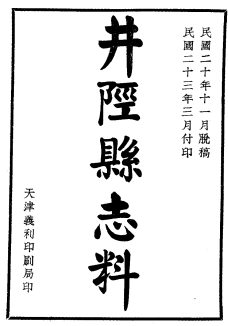 民國二十年十一月脫稿
民國二十三年三月付印
井陘縣志料
天津義利印刷局印